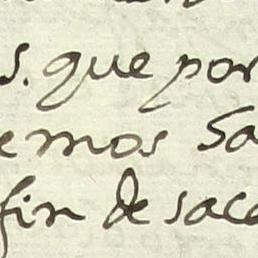 s. que por
emos Sa
fin de saca